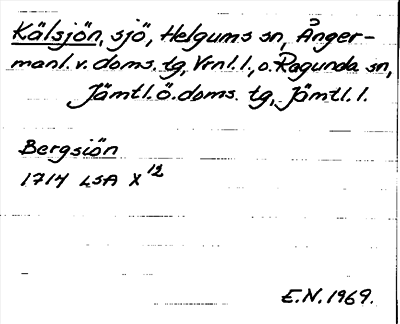 Kälsjön, sjö, Helgums sn, Ånger-
manl. v. doms. tg, Vrnl. l., o. Ragunda sn,
Jämtl. ö. doms. tg, Jämtl. l.
Bergsjön
1714 LSA X 12
E.N. 1969.